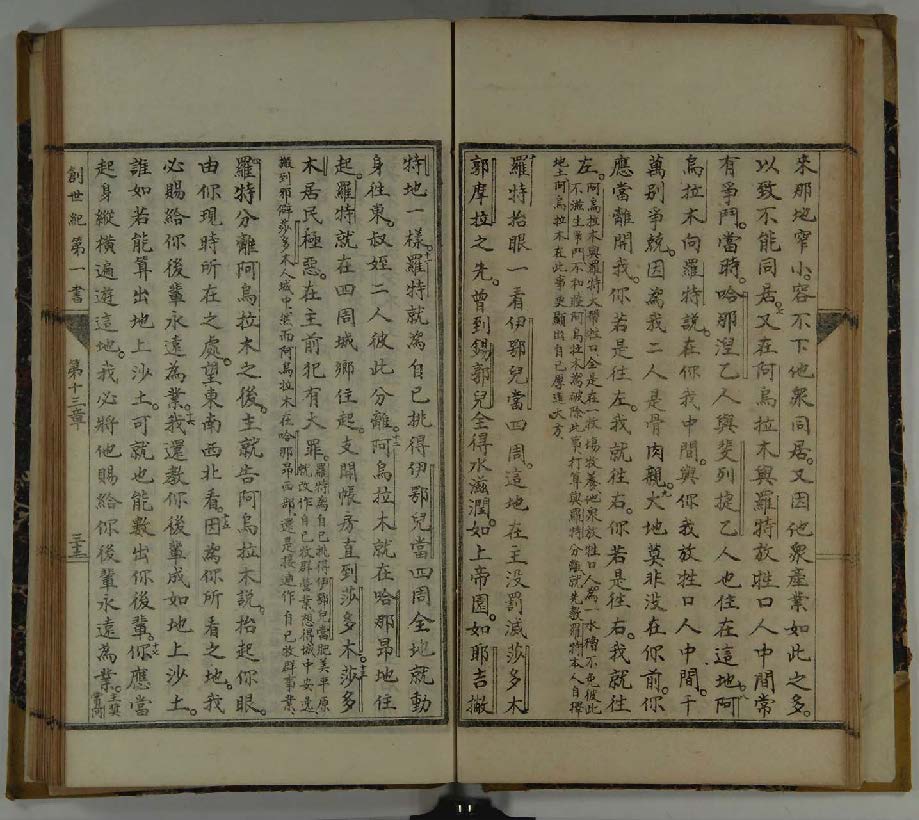 來那地窄小。容不下他衆同居。又因他衆產業如此之多。
以致不能同居。又在阿烏拉木與羅特放牲口人中間常
有爭鬥。當時。哈那湼乙人與斐列捷乙人也住在這地。阿
烏拉木向羅特說。在你我中間。與你我放牲口人中間。千
萬別爭競。因為我二人是骨肉親。大地莫非没在你前。你
應當離開我。你若是往左。我就往右。你若是往右。我就往
左。阿烏拉木與羅特大幫牲口全是在一牧場牧養。他衆放牲口人為一水槽不免彼此
不滋生爭鬥不和睦阿烏拉木為破除此事打算與羅特分離就先教羅特本人自擇
地土阿烏拉木在此事更顯出自己厚道大方
羅特抬眼一看伊鄂兒當四周。這地在主没罰滅莎多木
郭摩拉之先。曾到錫郭兒全得水滋潤。如上帝園。如耶吉撇
特地一樣。十一羅特就為自己挑得伊鄂兒當四周全地就動
身往東。叔姪二人彼此分離。十二阿烏拉木就在哈那昻地住
起。羅特就在四周城鄉住起。支開帳房直到莎多木。十三莎多
木居民極惡。在主前犯有大罪。羅特為自己挑得伊鄂兒當肥美平原
就改作自己牧群營業想得城中安逸
搬到邪僻莎多木人城中然而阿烏拉木在哈那昻西部還是接連作自己牧群事業
羅特分離阿烏拉木之後。主就告阿烏拉木說。抬起你眼。
由你現時所在之處。望東南西北看。十五因為你所看之地。我
必賜給你後輩永遠為業。十六我還教你後輩成如地上沙土。
誰如若能算出地上沙土。可就也能數出你後輩。十七你應當
起身縱橫遍遊這地。我必將他賜給你後輩永遠為業。
創世紀第一書
第十三章